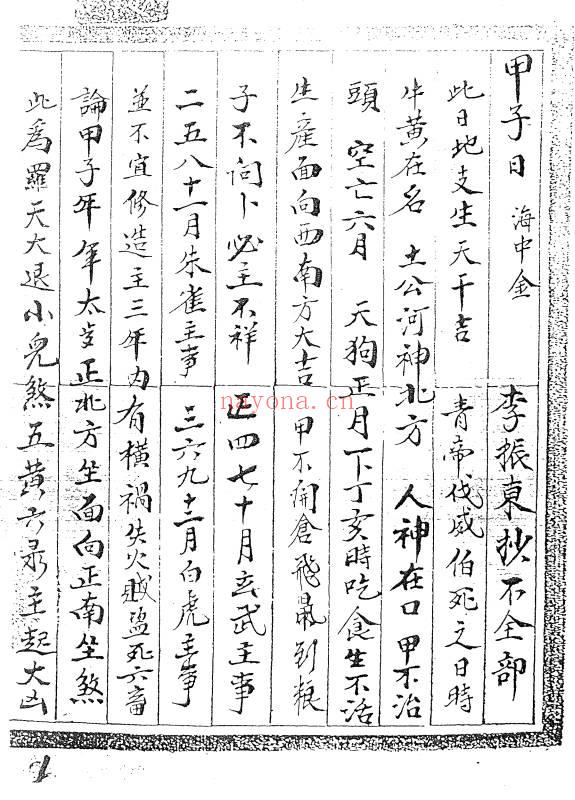 甲子日 海中金 李振東抄不全部
此日地支生天干吉 青帝伐威伯死之日時
牛黄在名 土公河神北方 人神在口 甲不治
頭 空亡六月 天狗正月下丁亥時吃食生不活
生產面向西南方大吉 甲不開倉飛鼠到糧
子不问卜必主不祥 正四七十月玄武主事
二五八十一月朱雀主事 三六九十二月白虎主事
並不宜修造主三年内有橫禍失火賊盜死六畜
論甲子年年太岁正北方坐面向正南坐煞
此為羅天大退小兒煞五黃六
主起大凶
nayona.cn
1